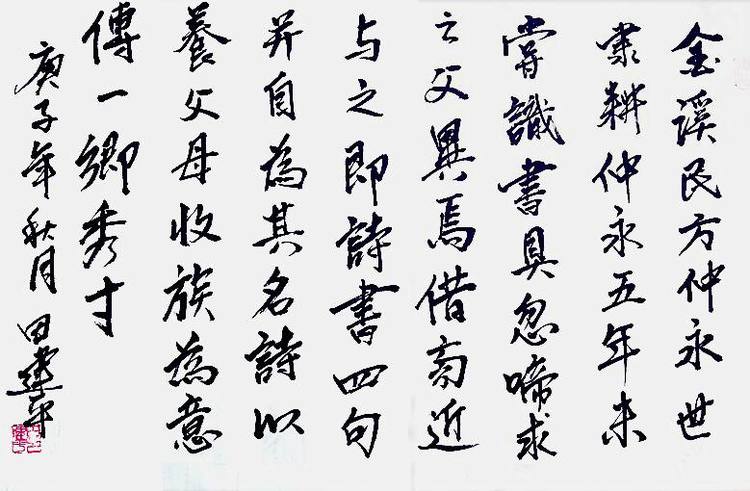 金溪民方仲永世
隶耕仲永五年未
嘗識書具忽啼求
之父異焉借旁近
与之即詩書四句
并自為其名詩以
養父母收族為意
傳一鄉秀才
庚子年秋月田建平